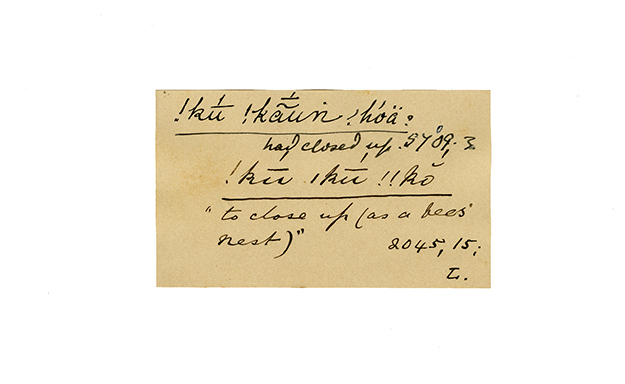 !kū́ !kā̃́uṅ !hóä:
had closed up. 5709, 3
!kū ˌkū !!kŏ
"to close up (as a bees'
nest)" 2045, 15;
L.